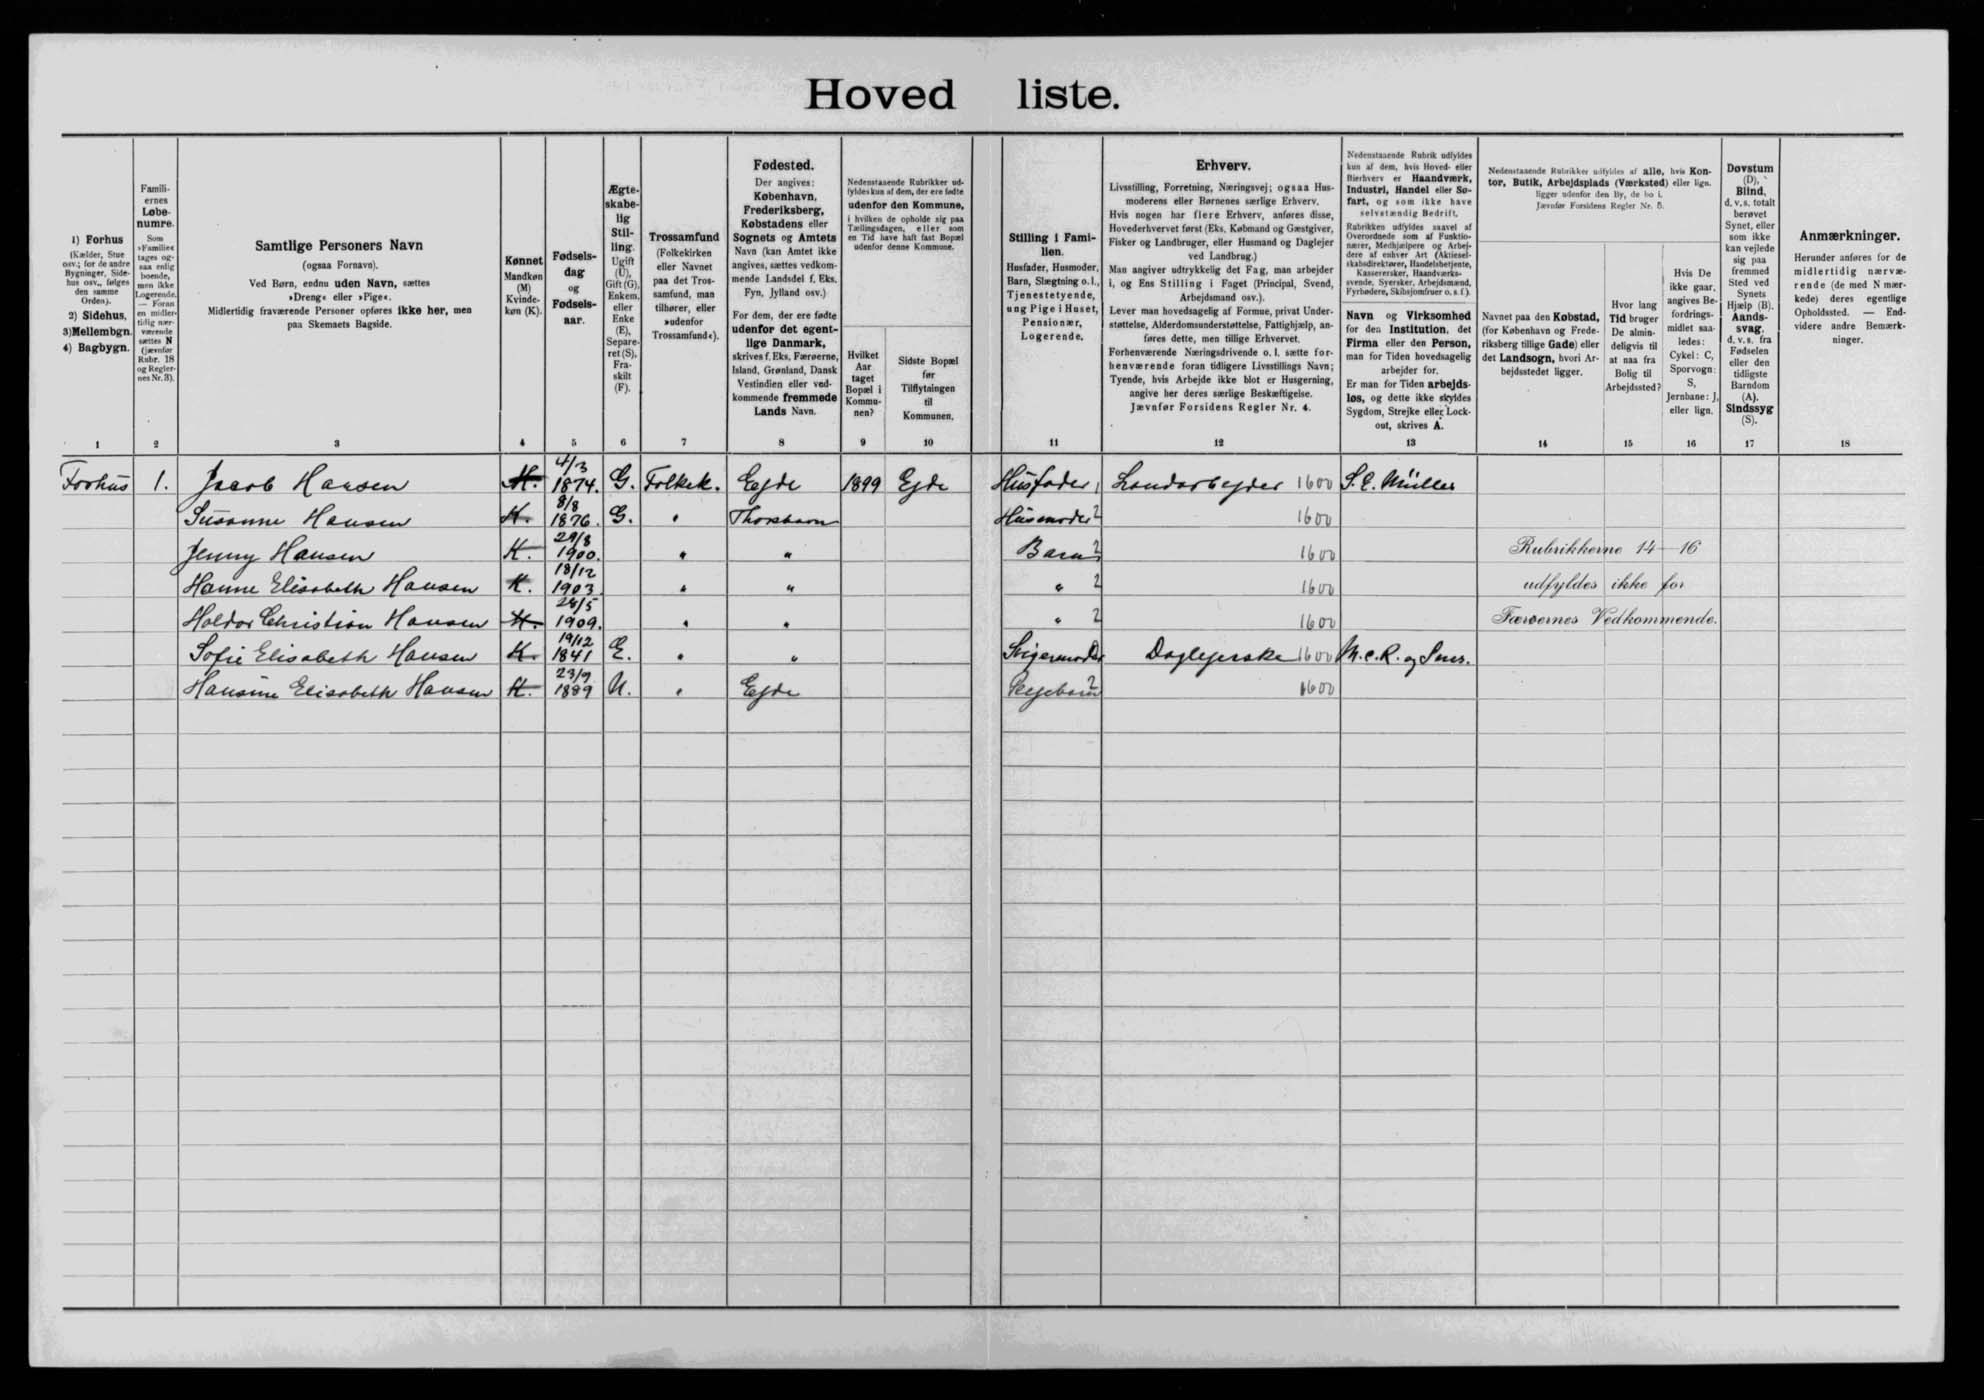 Hoved liste.
1) Forhus
(Kælder, Stue
osv.; for de andre
Bygninger, Side-
hus osv., følges
den samme
Orden).
2) Sidehus,
3) Mellembgn.
4) Bagbygn.
Famili-
ernes
Løbe-
numre.
Som
»Familie«
tages og-
saa enlig
boende,
men ikke
Logerende.
— Foran
en midler-
tidig nær-
værende
sættes N
(jævnfør
Rubr. 18
og Regler-
nes Nr. 3).
Samtlige Personers Navn
(ogsaa Fornavn).
Ved Børn, endnu uden Navn, sættes
»Dreng« eller »Pige«.
Midlertidig fraværende Personer opføres ikke her, men
paa Skemaets Bagside.
Kønnet
Mandkøn
(M)
Kvinde-
køn (K).
Fødsels-
dag
og
Fødsels-
aar.
Ægte-
skabe-
lig
Stil-
ling.
Ugift
(U),
Gift (G),
Enkem.
eller
Enke
(E),
Separe-
ret (S),
Fra-
skilt
(F).
Trossamfund
(Folkekirken
eller Navnet
paa det Tros-
samfund, man
tilhører, eller
»udenfor
Trossamfund«).
Fødested.
Der angives:
København,
Frederiksberg,
Købstadens eller
Sognets og Amtets
Navn (kan Amtet ikke
angives, sættes vedkom-
mende Landsdel f. Eks.
Fyn, Jylland osv.)
For dem, der ere fødte
udenfor det egent-
lige Danmark,
skrives f. Eks. Færøerne,
Island, Grønland, Dansk
Vestindien eller ved-
kommende fremmede
Lands Navn.
Nedenstaaende Rubrikker ud-
fyldes kun af dem, der ere fødte
udenfor den Kommune,
i hvilken de opholde sig paa
Tællingsdagen, eller som
en Tid have haft fast Bopæl
udenfor denne Kommune.
Hvilket
Aar
taget
Bopæl i
Kommu-
nen?
Sidste Bopæl
før
Tilflytningen
til
Kommunen.
Stilling i Fami-
lien.
Husfader, Husmoder,
Barn, Slægtning o. l.,
Tjenestetyende,
ung Pige i Huset,
Pensionær,
Logerende.
Erhverv.
Livsstilling, Forretning, Næringsvej; ogsaa Hus-
moderens eller Børnenes særlige Erhverv.
Hvis nogen har flere Erhverv, anføres disse,
Hovederhvervet først (Eks. Købmand og Gæstgiver,
Fisker og Landbruger, eller Husmand og Daglejer
ved Landbrug.)
Man angiver udtrykkelig det Fag, man arbejder
i, og Ens Stilling i Faget (Principal, Svend,
Arbejdsmand osv.).
Lever man hovedsagelig af Formue, privat Under-
støttelse, Alderdomsunderstøttelse, Fattighjælp, an-
føres dette, men tillige Erhvervet.
Forhenværende Næringsdrivende o. l. sætte for-
henværende foran tidligere Livsstillings Navn;
Tyende, hvis Arbejde ikke blot er Husgerning,
angive her deres særlige Beskæftigelse.
Jævnfør Forsidens Regler Nr. 4.
Nedenstaaende Rubrik udfyldes
kun af dem, hvis Hoved- eller
Bierhverv er Haandværk,
Industri, Handel eller Sø-
fart, og som ikke have
selvstændig Bedrift.
Rubrikken udfyldes saavel af
Overordnede som af Funktio-
nærer, Medhjælpere og Arbej-
dere af enhver Art (Aktiesel-
skabsdirektører, Handelsbetjente,
Kasserersker, Haandværks-
svende, Syersker, Arbejdsmænd,
Fyrbødere, Skibsjomfruer o. s. f.).
Navn og Virksomhed
for den Institution, det
Firma eller den Person,
man for Tiden hovedsagelig
arbejder for.
Er man for Tiden arbejds-
løs, og dette ikke skyldes
Sygdom, Strejke eller Lock-
out, skrives A.
Nedenstaaende Rubrikker udfyldes af alle, hvis Kon-
tor, Butik, Arbejdsplads (Værksted) eller lign.
ligger udenfor den By, de bo i.
Jævnfør Forsidens Regler Nr. 5.
Navnet paa den Købstad,
(for København og Frede-
riksberg tillige Gade) eller
det Landsogn, hvori Ar-
bejdsstedet ligger.
Hvor lang
Tid bruger
De almin-
deligvis til
at naa fra
Bolig til
Arbejdssted?
Hvis De
ikke gaar,
angives Be-
fordrings-
midlet saa-
ledes:
Cykel: C,
Sporvogn:
S,
Jernbane: J,
eller lign.
Døvstum
(D),
Blind,
d. v. s. totalt
berøvet
Synet, eller
som ikke
kan vejlede
sig paa
fremmed
Sted ved
Synets
Hjælp (B).
Aands-
svag,
d. v. s. fra
Fødselen
eller den
tidligste
Barndom
(A).
Sindssyg
(S).
Anmærkninger.
Herunder anføres for de
midlertidig nærvæ-
rende (de med N mær-
kede) deres egentlige
Opholdssted. — End-
videre andre Bemærk-
ninger.
1 2 3 4 5 6 7 8 9 10 11 12 13 14 15 16 17 18
Forhus 1. Jacob Hansen M. 4/3 1874. G. Folkek. Ejde 1899 Ejde Husfader 1 Landarbejder 1600 S. E. Müller
Susanne Hansen K. 8/8 1876. G. " Thorshavn Husmoder 2 1600
Jenny Hansen K. 29/8 1900. " " Barn 2 1600 Rubrikkerne 14—16
Hanne Elisabeth Hansen K. 18/12 1903. " " " 2 1600 udfyldes ikke for
Haldor Christian Hansen M. 28/5 1909. " " " 2 1600 Færøernes Vedkommende.
Sofie Elisabeth Hansen K. 19/12 1841 E. " " Svigermoder Daglejerske 1600 M. C. R. og Søns.
Hansine Elisabeth Hansen K. 23/9 1889 U. " Ejde Plejebarn 2 1600